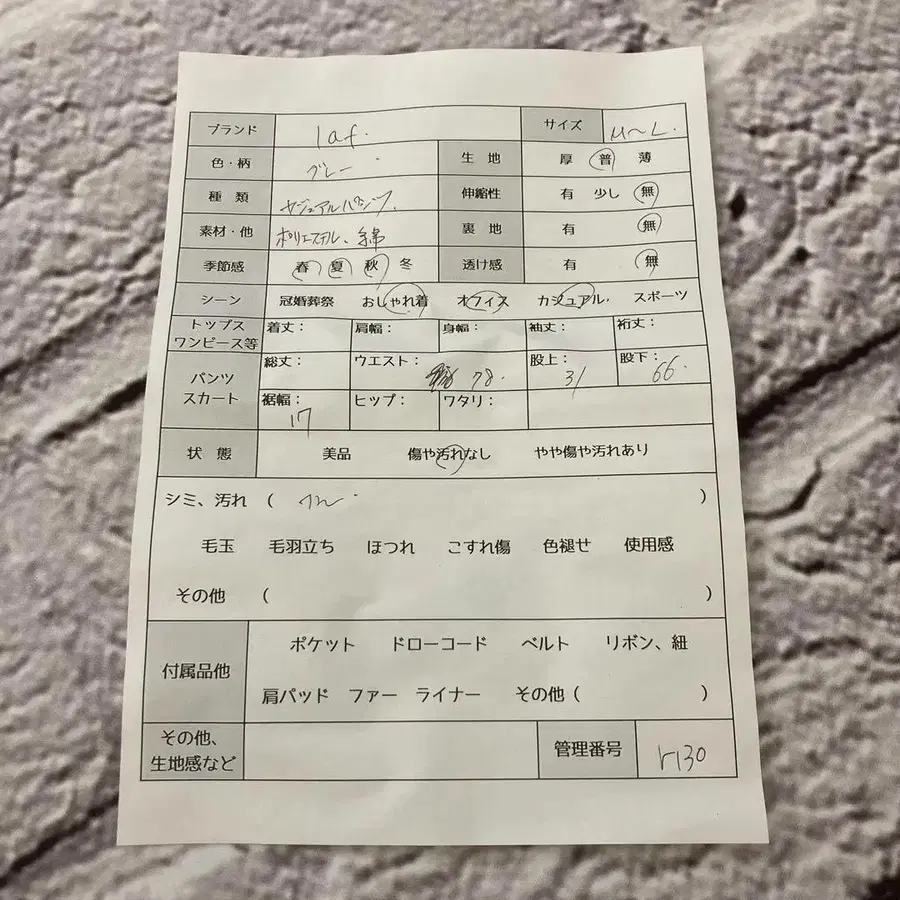 ブランド laf. サイズ M〜L.
色・柄 グレー 生地 厚 普 薄
種類 カジュアルパンツ 伸縮性 有 少し 無
素材・他 ポリエステル、綿 裏地 有 無
季節感 春 夏 秋 冬 透け感 有 無
シーン 冠婚葬祭 おしゃれ着 オフィス カジュアル・ スポーツ
トップス ワンピース等 着丈： 肩幅： 身幅： 袖丈： 裄丈：
パンツ スカート 総丈： ウエスト： 78. 股上： 31 股下： 66.
裾幅： 17 ヒップ： ワタリ：
状態 美品 傷や汚れなし やや傷や汚れあり
シミ、汚れ （ ）
毛玉 毛羽立ち ほつれ こすれ傷 色褪せ 使用感
その他 （ ）
付属品他 ポケット ドローコード ベルト リボン、紐
肩パッド ファー ライナー その他（ ）
その他、
生地感など 管理番号 r130